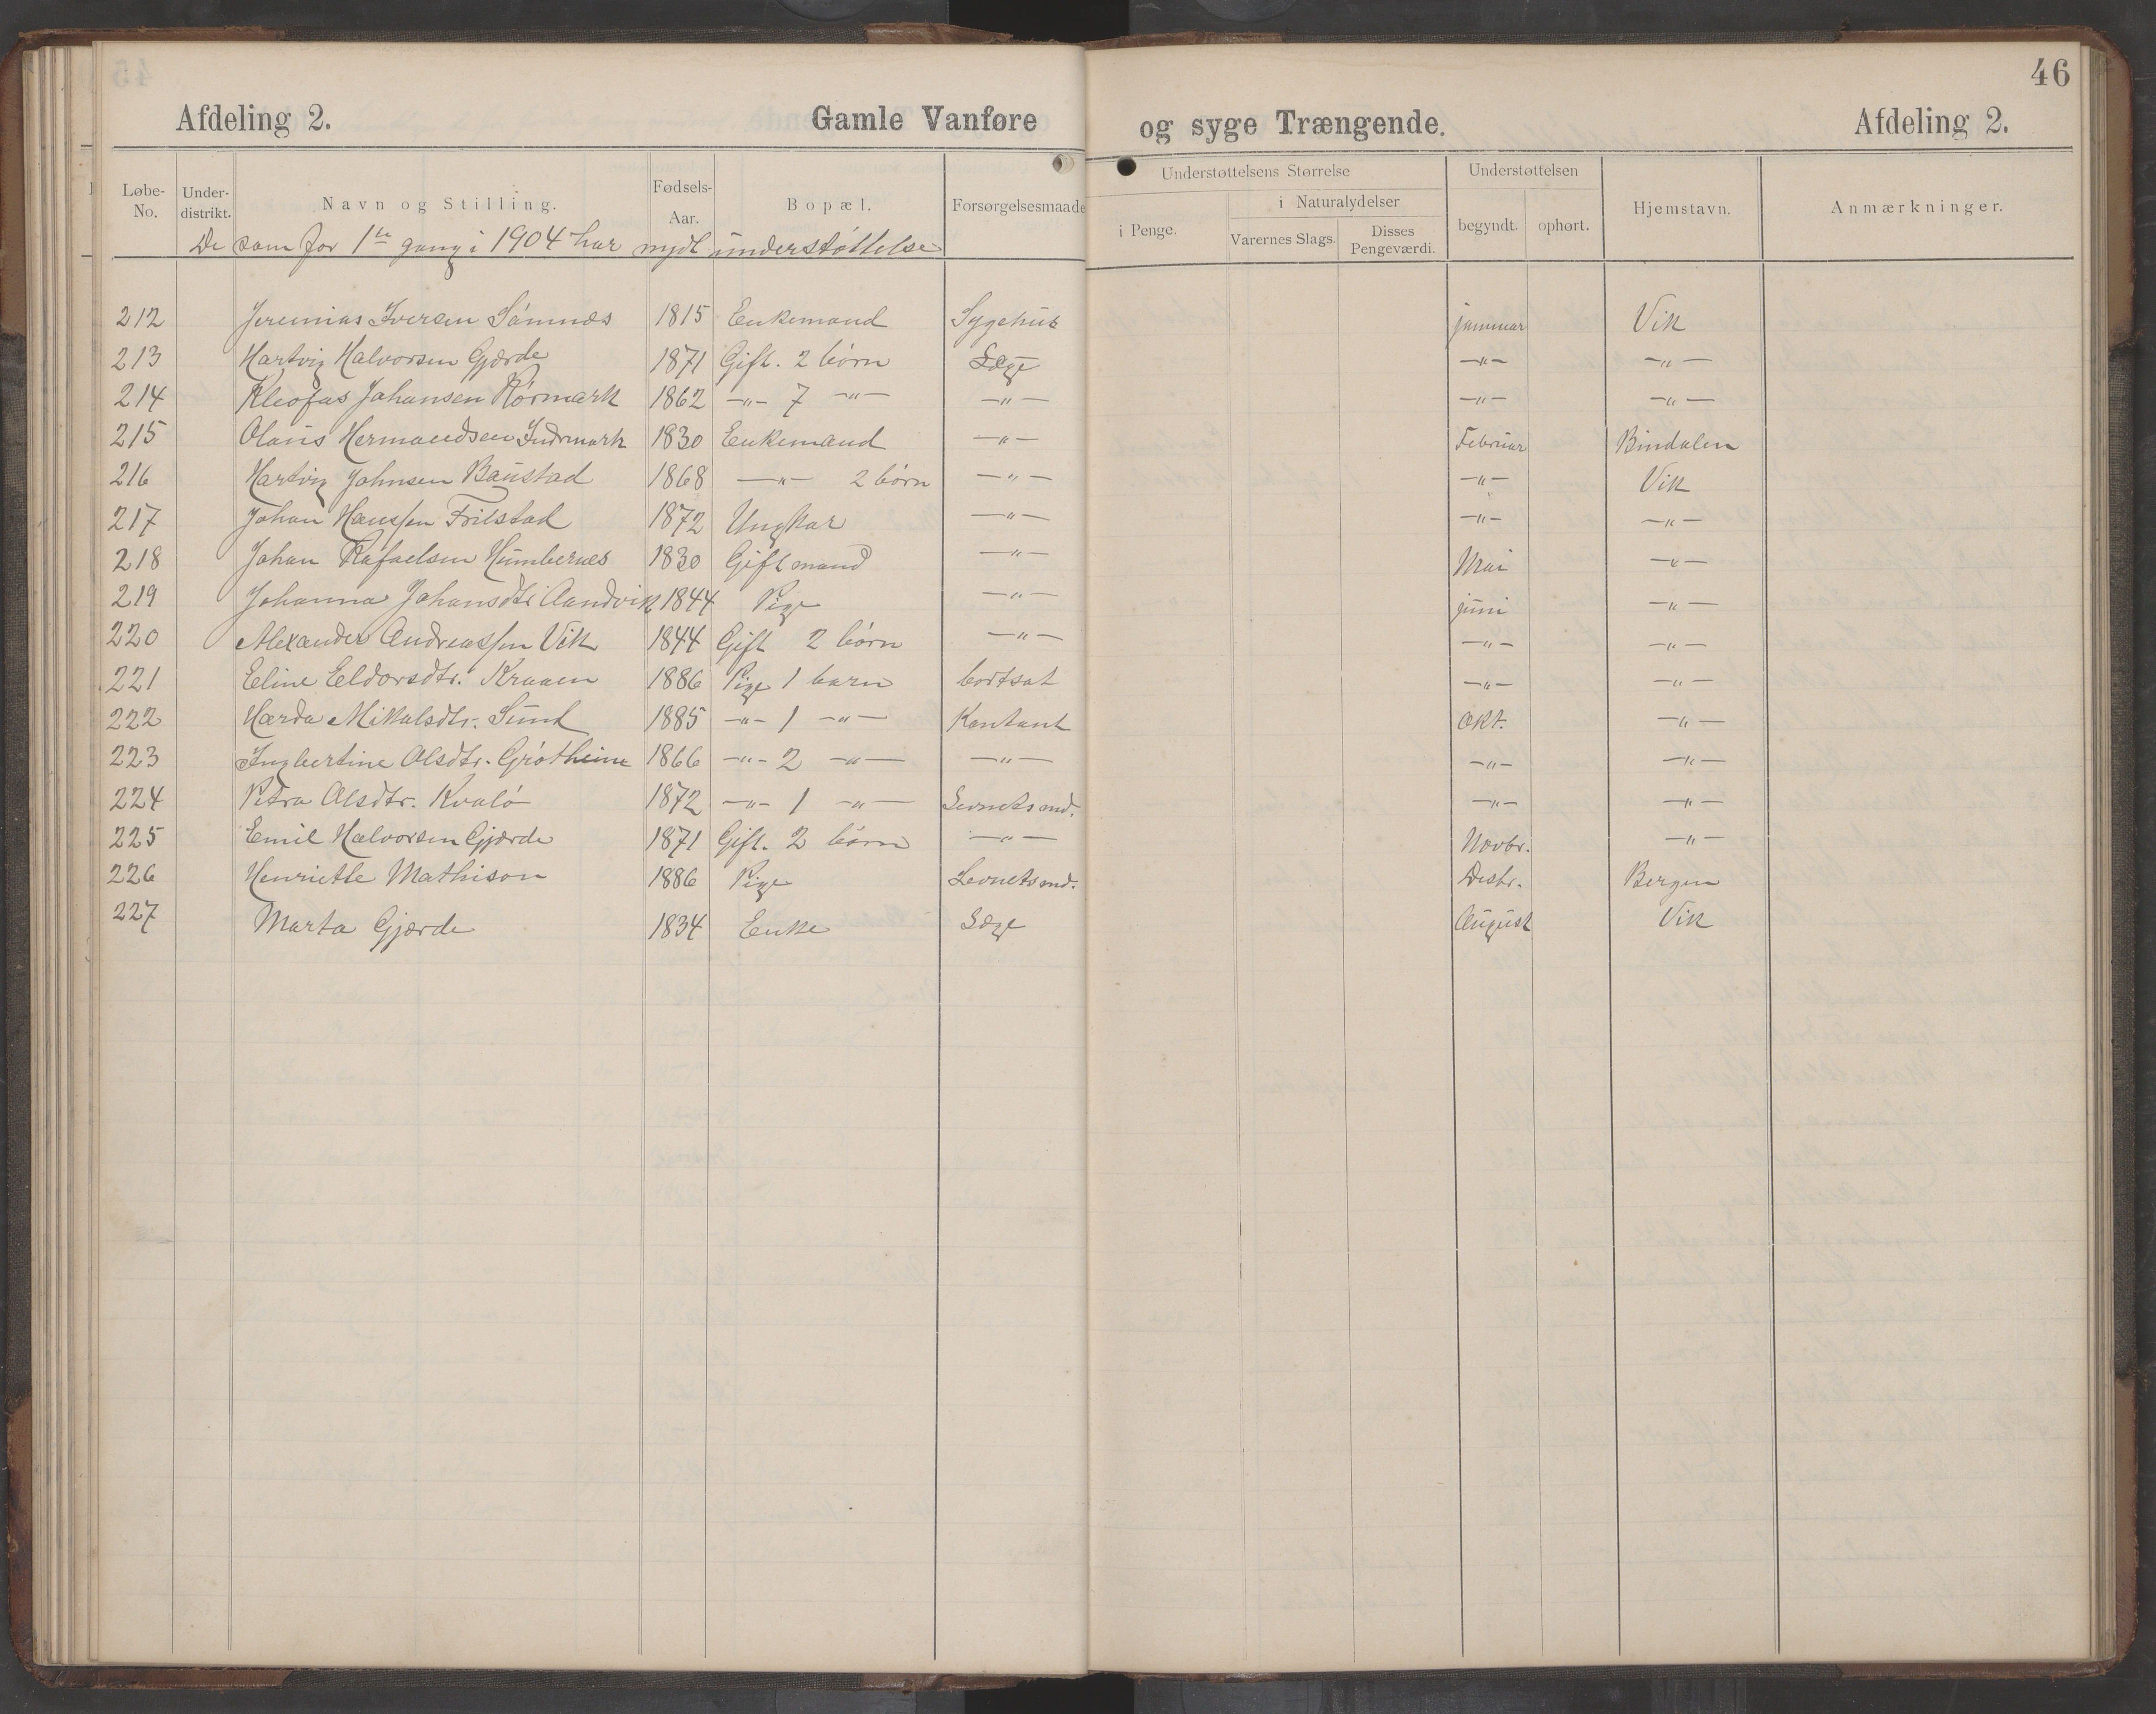 46
Afdeling 2. Gamle Vanføre og syge Trængende. Afdeling 2.
Understøttelsens Størrelse Understøttelsen
Løbe-No. Under-distrikt. Navn og Stilling. Fødsels-Aar. Bopæl. Forsørgelsesmaade i Penge. i Naturalydelser Varernes Slags. Disses Pengeværdi. begyndt. ophørt. Hjemstavn. Anmærkninger.
De som for 1ste gang i 1904 har nydt understøttelse
212 Jeremias Iversen Sømnæs 1815 Enkemand Sygehus januar Vik
213 Hartvig Halvorsen Gjærde 1871 Gift. 2 børn Læge —"— —"—
214 Kleofas Johansen Rørmark 1862 —"— 7 —"— —"— —"— —"—
215 Olaus Hermandsen Indrmark 1830 Enkemand —"— Februar Bindalen
216 Hartvig Johnsen Baustad 1868 —"— 2 børn —"— —"— Vik
217 Johan Hanssen Trilstad 1872 Ungkar —"— —"— —"—
218 Johan Rafaelsen Humbernes 1830 Gift mand —"— Mai —"—
219 Johanna Johansdtr Aandvik 1844 Pige —"— juni —"—
220 Alexander Andreassen Vik 1844 Gift 2 børn —"— —"— —"—
221 Eline Eldorsdtr. Kraaen 1886 Pige 1 barn bortsat —"— —"—
222 Harda Mikalsdtr. Sund 1885 —"— 1 —"— Kontant Okt. —"—
223 Ingbertine Olsdtr. Grøtheim 1866 —"— 2 —"— —"— —"— —"—
224 Petra Olsdtr. Kvalø 1872 —"— 1 —"— Levnetsmd. —"— —"—
225 Emil Halvorsen Gjærde 1871 Gift. 2 børn —"— Novbr. —"—
226 Henriette Mathison 1886 Pige Levnetsmd. Desbr. Bergen
227 Marta Gjærde 1834 Enke Læge August Vik